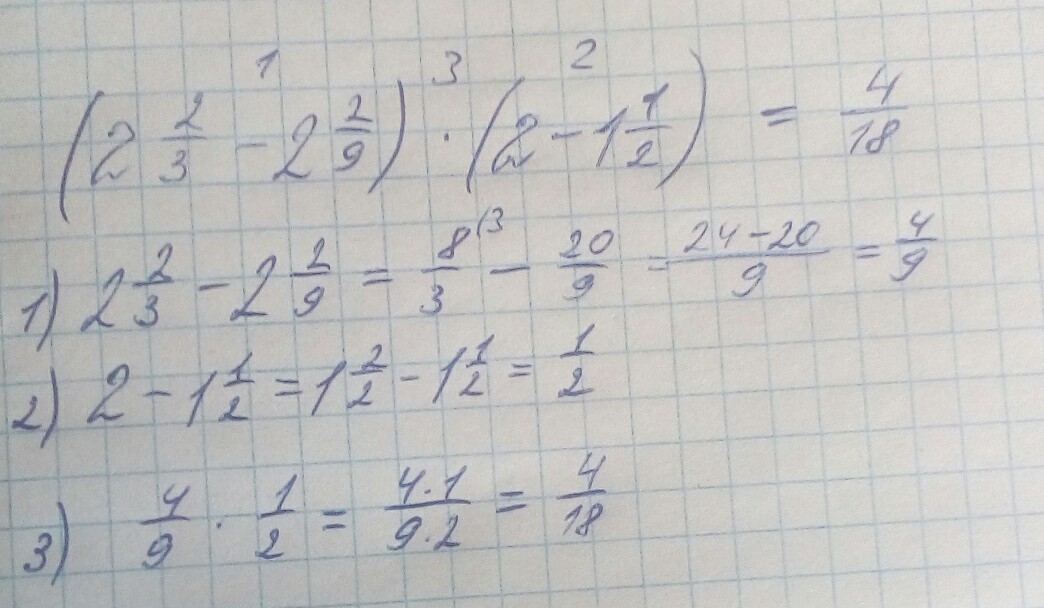 1 3 2
(2 2/3 - 2 2/9) · (2 - 1 1/2) = 4/18
1) 2 2/3 - 2 2/9 = 8/3 (3 - 20/9 = 24-20/9 = 4/9
2) 2 - 1 1/2 = 1 2/2 - 1 1/2 = 1/2
3) 4/9 · 1/2 = 4·1/9·2 = 4/18